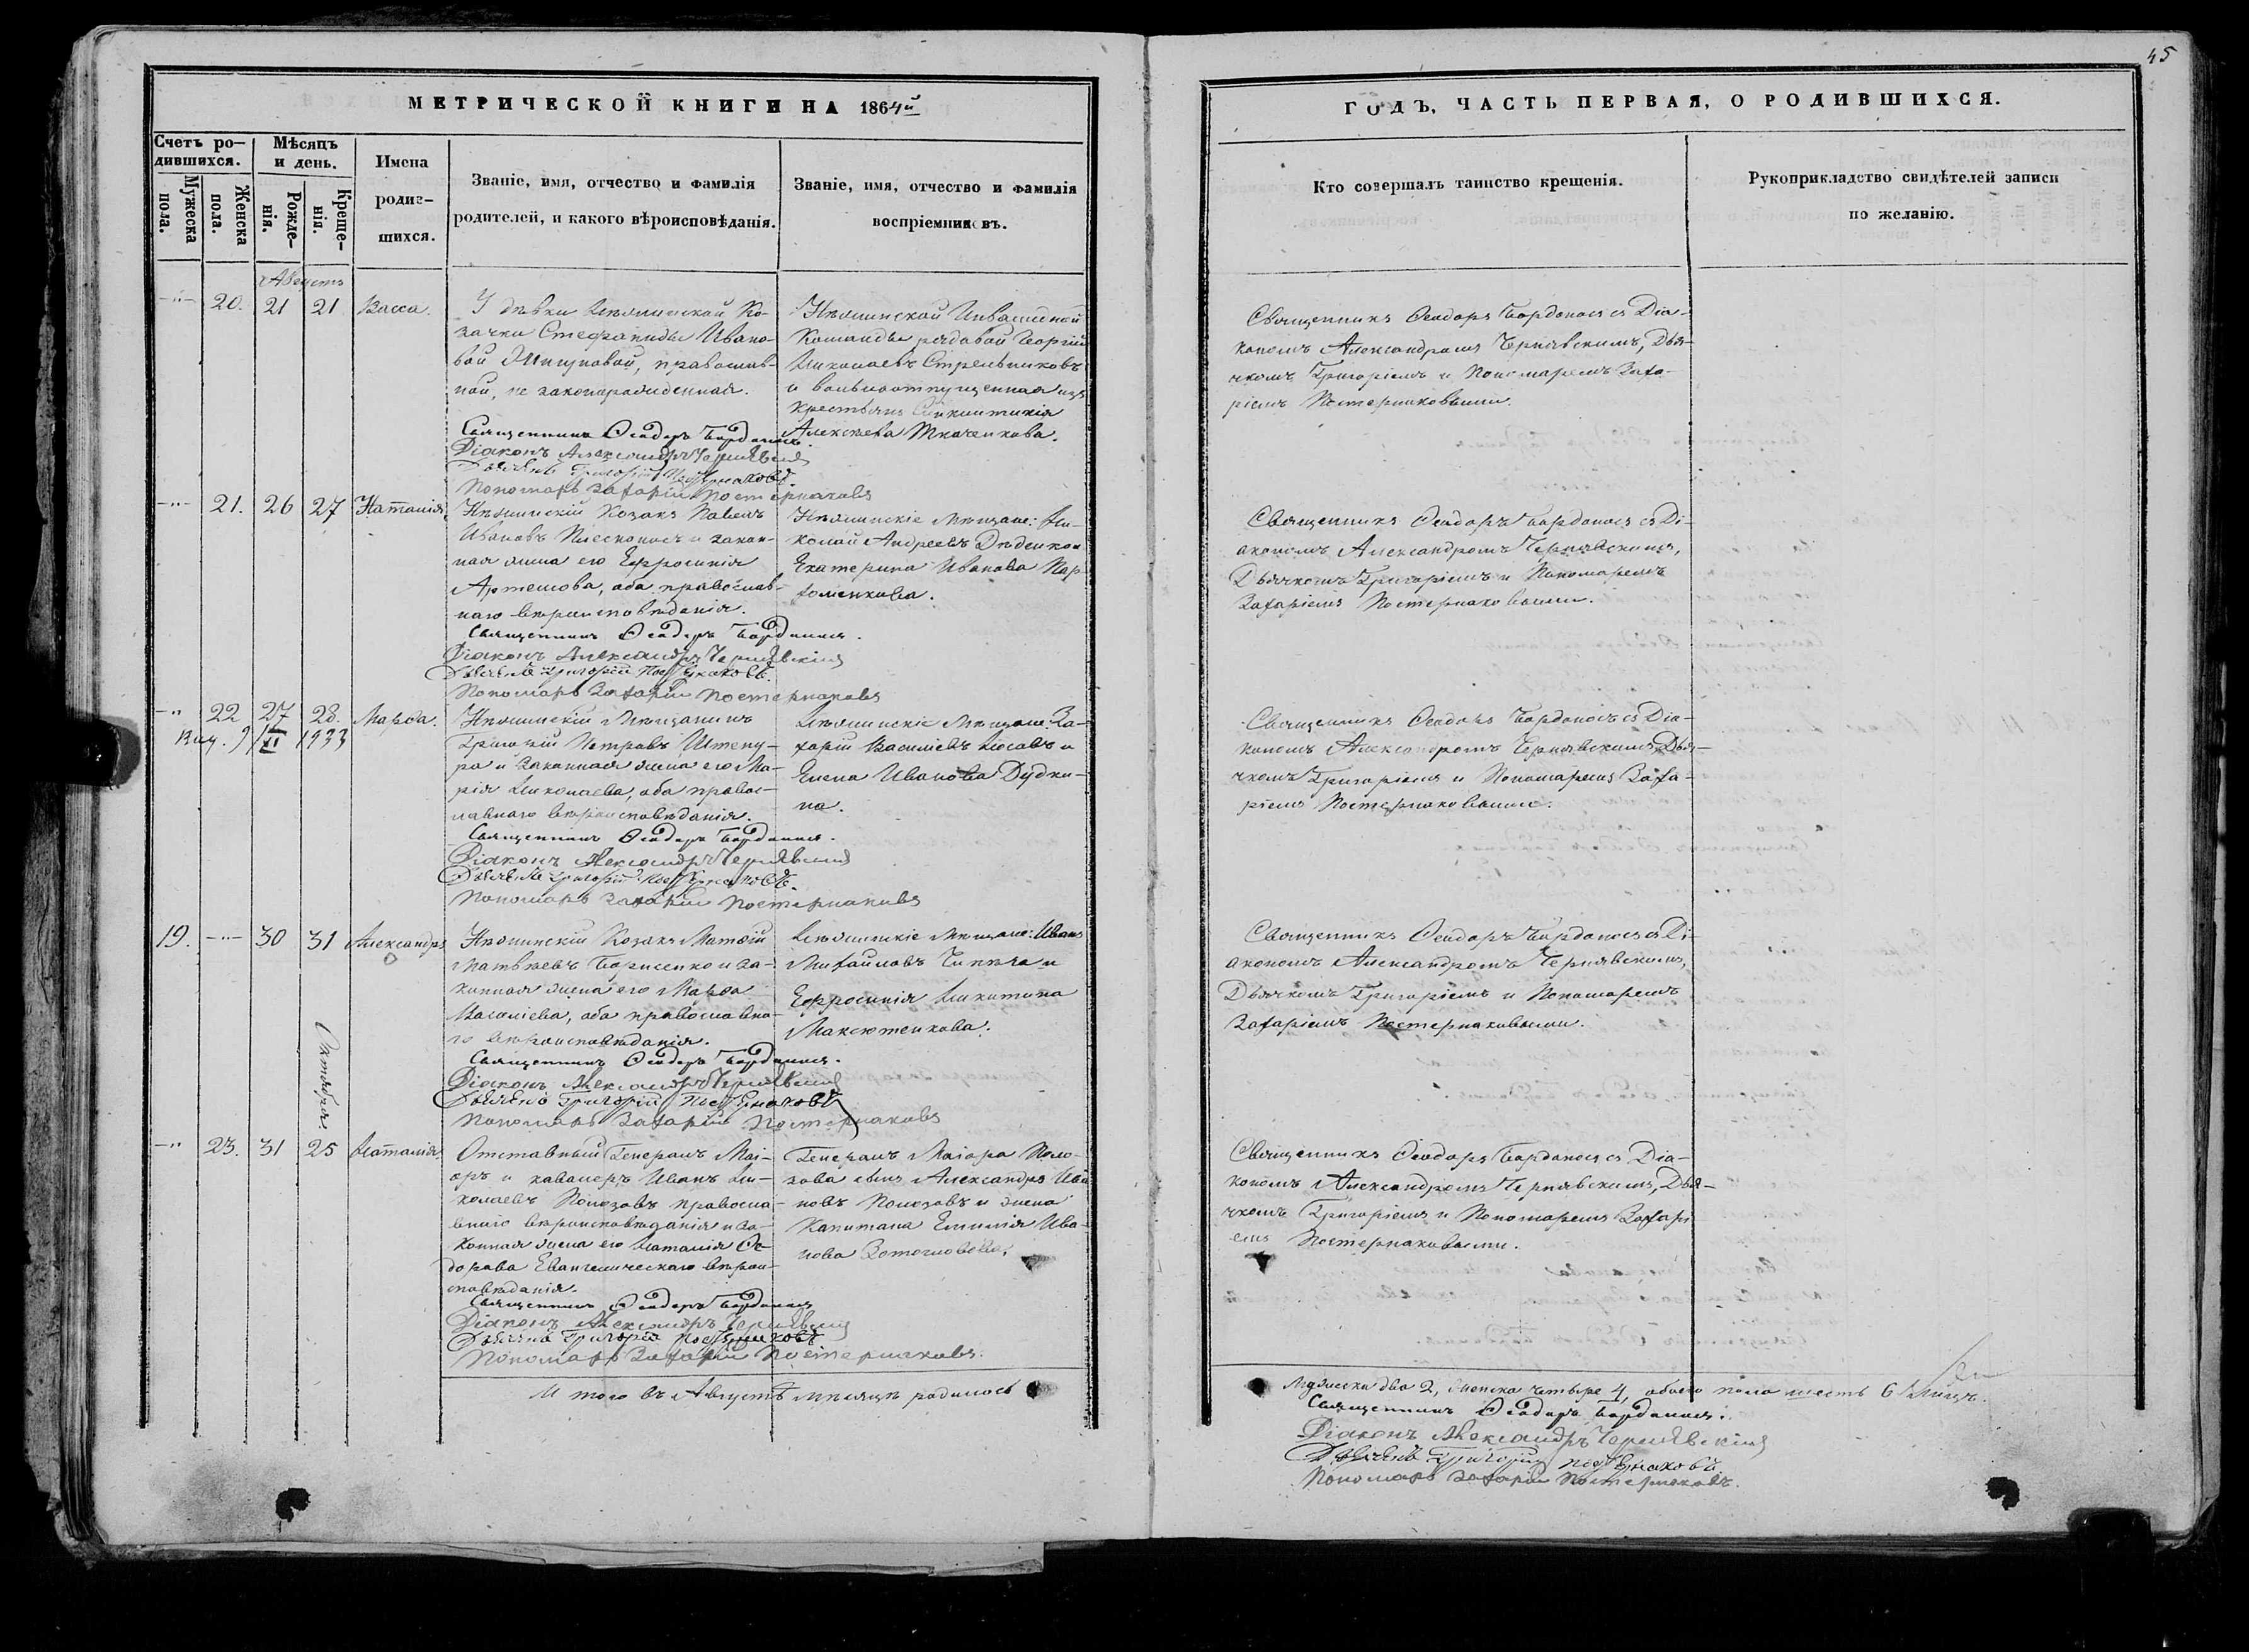 45
МЕТРИЧЕСКОЙ КНИГИ НА 1864й
ГОДЪ, ЧАСТЬ ПЕРВАЯ, О РОДИВШИХСЯ.
Счетъ ро-
дившихся.
Мужеска
пола.
Женска
пола.
Мѣсяцъ
и день.
Рожде-
нія.
Креще-
нія.
Имена
родив-
шихся.
Званіе, имя, отчество и фамилія
родителей, и какого вѣроисповѣданія.
Званіе, имя, отчество и фамилія
воспріемниковъ.
Кто совершалъ таинство крещенія.
Рукоприкладство свидѣтелей записи
по желанію.
Августъ
20. 21 21 Васса.
У дѣвки Нѣжинской Ко-
зачки Стефаниды Ивано-
вой, православ-
ной, не законорожденная.
Священникъ Ѳеодоръ Бордоносъ.
Діаконъ Александръ Чернявскій
Дьячекъ Григорій Постернаковъ.
Пономарь Захарій Постернаковъ
Нѣжинской Инвалидной
Команды рядовой Георгій
Николаевъ Стрельниковъ
и вольноотпущенная изъ
крестьянъ Синклитикія
Алексѣева Ткаченкова.
Священникъ Ѳеодоръ Бордоносъ съ Діа-
кономъ Александромъ Чернявскимъ, Дья-
чкомъ Григоріемъ и Пономаремъ Заха-
ріемъ Постернаковыми.
21. 26 27 Наталія
Нѣжинскій Козакъ Павелъ
Ивановъ и закон-
ная жена его Ефросинія
Артемова, оба православ-
наго вѣроисповѣданія.
Священникъ Ѳеодоръ Бордоносъ.
Діаконъ Александръ Чернявскій
Дьячекъ Григорій Постернаковъ.
Пономарь Захарій Постернаковъ
Нѣжинскіе Мѣщане: Ни-
колай Андреевъ Дѣденко и
Екатерина Иванова Пар-
хоменкова.
Священникъ Ѳеодоръ Бордоносъ съ Ді-
акономъ Александромъ Чернявскимъ,
Дьячкомъ Григоріемъ и Пономаремъ
Захаріемъ Постернаковыми.
22 27 28. Марѳа.
XI 1933
Нѣжинскій Мѣщанинъ
Григорій Петровъ Шпету-
ра и законная жена его Ма-
рія Николаева, оба правос-
лавнаго вѣроисповѣданія.
Священникъ Ѳеодоръ Бордоносъ.
Діаконъ Александръ Чернявскій
Дьячекъ Григорій Постернаковъ.
Пономарь Захарій Постернаковъ
Нѣжинскіе Мѣщане: За-
харій Василіевъ Носовъ и
Елена Иванова Дудки-
на.
Священникъ Ѳеодоръ Бордоносъ съ Діа-
кономъ Александромъ Чернявскимъ, Дья-
чкомъ Григоріемъ и Пономаремъ Заха-
ріемъ Постернаковыми.
19. 30 31 Александръ
Нѣжинскій Козакъ Матѳій
Матвѣевъ Борисенко и за-
конная жена его Марѳа
Василіева, оба православна-
го вѣроисповѣданія.
Священникъ Ѳеодоръ Бордоносъ.
Діаконъ Александръ Чернявскій
Дьячекъ Григорій Постернаковъ
Пономарь Захарій Постернаковъ
Нѣжинскіе Мѣщане: Иванъ
Михайловъ и
Ефросинія Никитина
Максютенкова.
Священникъ Ѳеодоръ Бордоносъ съ Ді-
акономъ Александромъ Чернявскимъ,
Дьячкомъ Григоріемъ и Пономаремъ
Захаріемъ Постернаковыми.
Октября
23. 31 25 Наталія.
Отставный Генералъ Маі-
оръ и кавалеръ Иванъ Ни-
колаевъ Полозовъ правосла-
внаго вѣроисповѣданія и за-
конная жена его Наталія Ѳе-
дорова Евангелическаго вѣрои-
сповѣданія.
Священникъ Ѳеодоръ Бордоносъ
Діаконъ Александръ Чернявскій
Дьячекъ Григорій Постернаковъ
Пономарь Захарій Постернаковъ.
Генералъ Маіора Поло-
зова сынъ Александръ Ива-
новъ Полозовъ и жена
Капитана Емилія Ива-
нова
Священникъ Ѳеодоръ Бордоносъ съ Діа-
кономъ Александромъ Чернявскимъ, Дья-
чкомъ Григоріемъ и Пономаремъ Захарі
емъ Постернаковыми.
И того въ Августѣ мѣсяцѣ родилось
Мужеска два 2, женска четыре 4, обоего пола шесть 6 лицъ.
Священникъ Ѳеодоръ Бордоносъ.
Діаконъ Александръ Чернявскій
Дьячекъ Григорій Постернаковъ
Пономарь Захарій Постернаковъ.